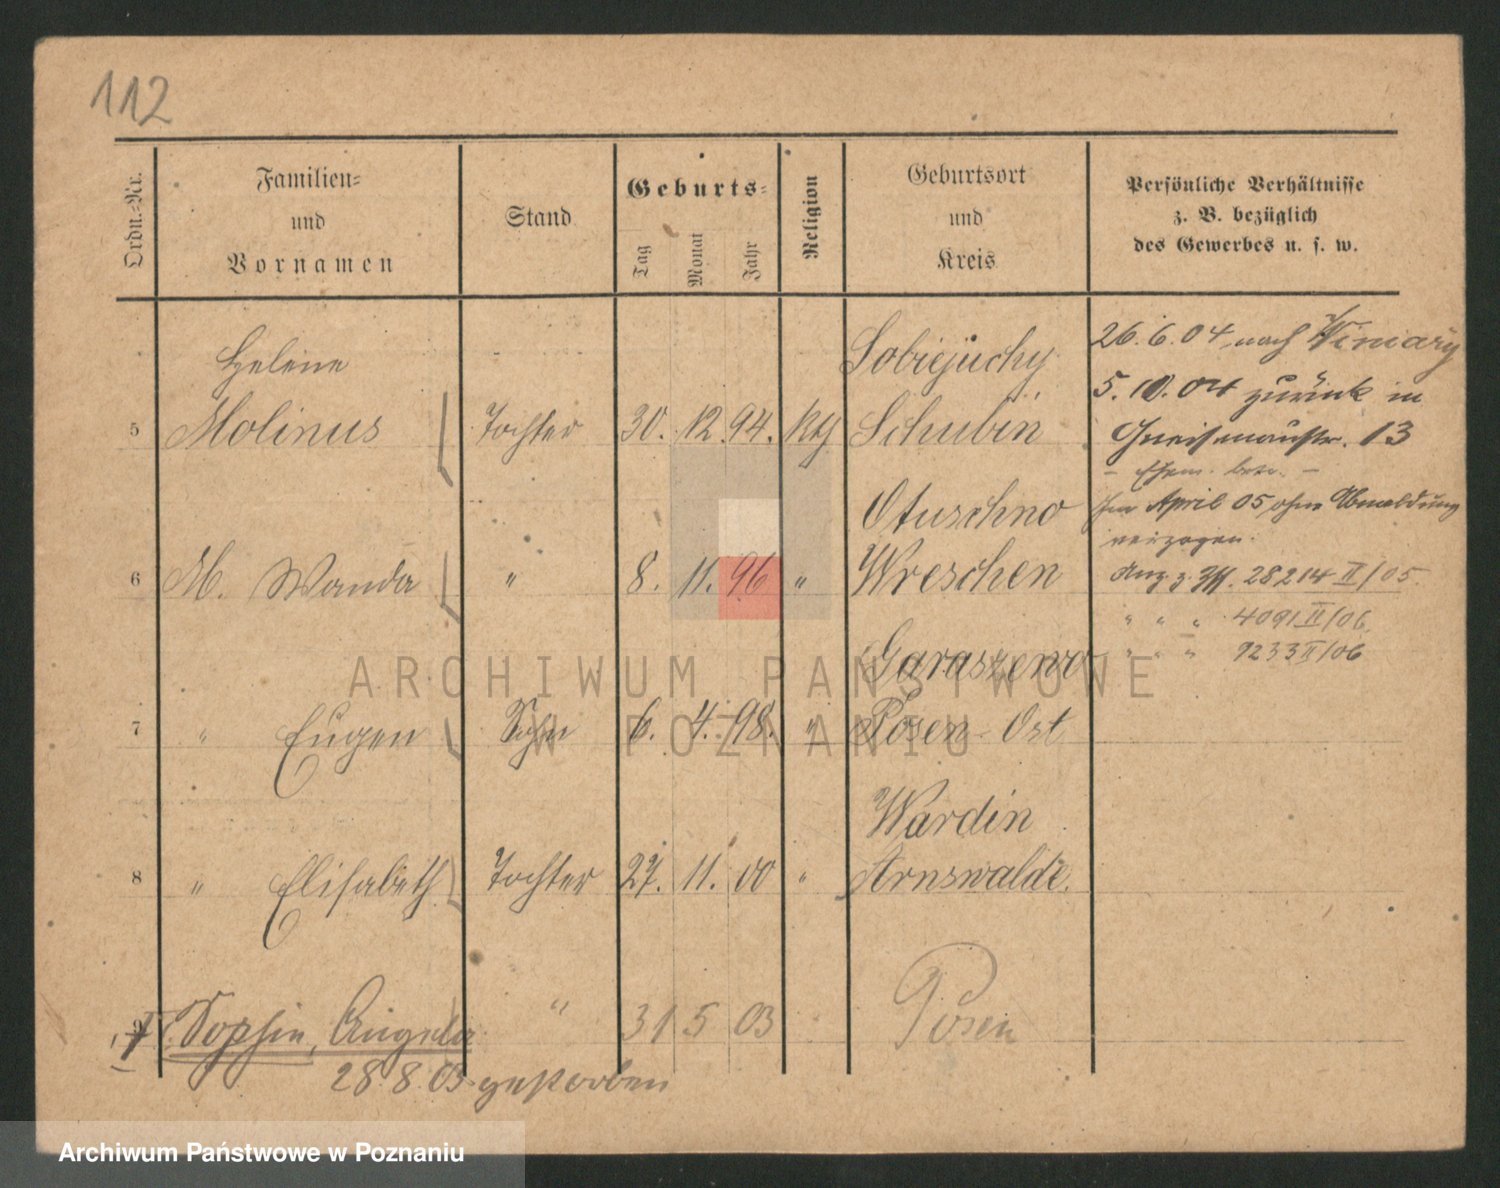 112
Ordn.-Nr.
Familien-
und
Vornamen
Stand
Geburts-
Tag
Monat
Jahr
Religion
Geburtsort
und
Kreis
Persönliche Verhältnisse
z. B. bezüglich
des Gewerbes u. s. w.
Helene Sobiejuchy
5 Molinus Tochter 30. 12. 94. kth Schubin
26.6.04 nach Winiary
5.10.04 zurück in
Gneisenaustr. 13
Otuschno
6 M. Wanda " 8. 11. 96 " Wreschen
April 05 ohne Abmeldung
verzogen.
28214 II/05.
" " " 4091 II/06
" " " 9233 II/06
Garaszewo
7 " Eugen Sohn 6. 4. 98. " Posen-Ost
Wardin
8 " Elisabeth Tochter 27. 11. 00 " Arnswalde.
9 Sophie, Angela " 31 5 03 Posen
28.8.03 gestorben
ARCHIWUM PAŃSTWOWE
W POZNANIU
Archiwum Państwowe w Poznaniu